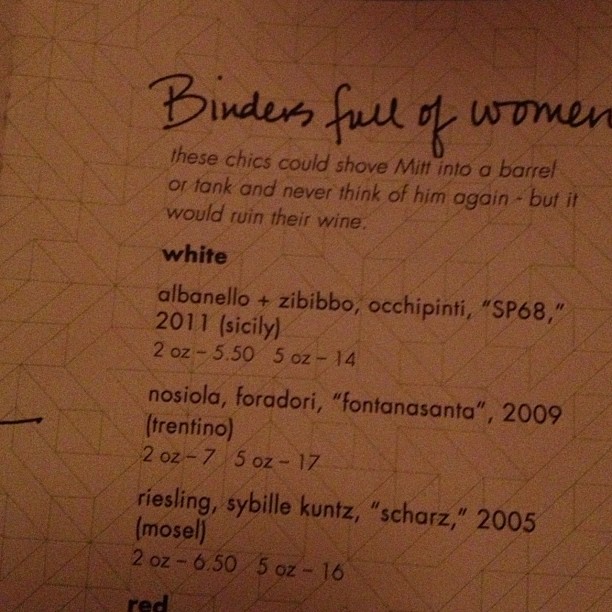 Binders full of women
these chics could shove Mitt into a barrel
or tank and never think of him again - but it
would ruin their wine.
white
albanello + zibibbo, occhipinti, "SP68,"
2011 (sicily)
2 oz – 5.50 5 oz – 14
nosiola, foradori, "fontanasanta", 2009
(trentino)
2 oz – 7 5 oz – 17
riesling, sybille kuntz, "scharz," 2005
(mosel)
2 oz – 6.50 5 oz – 16
red